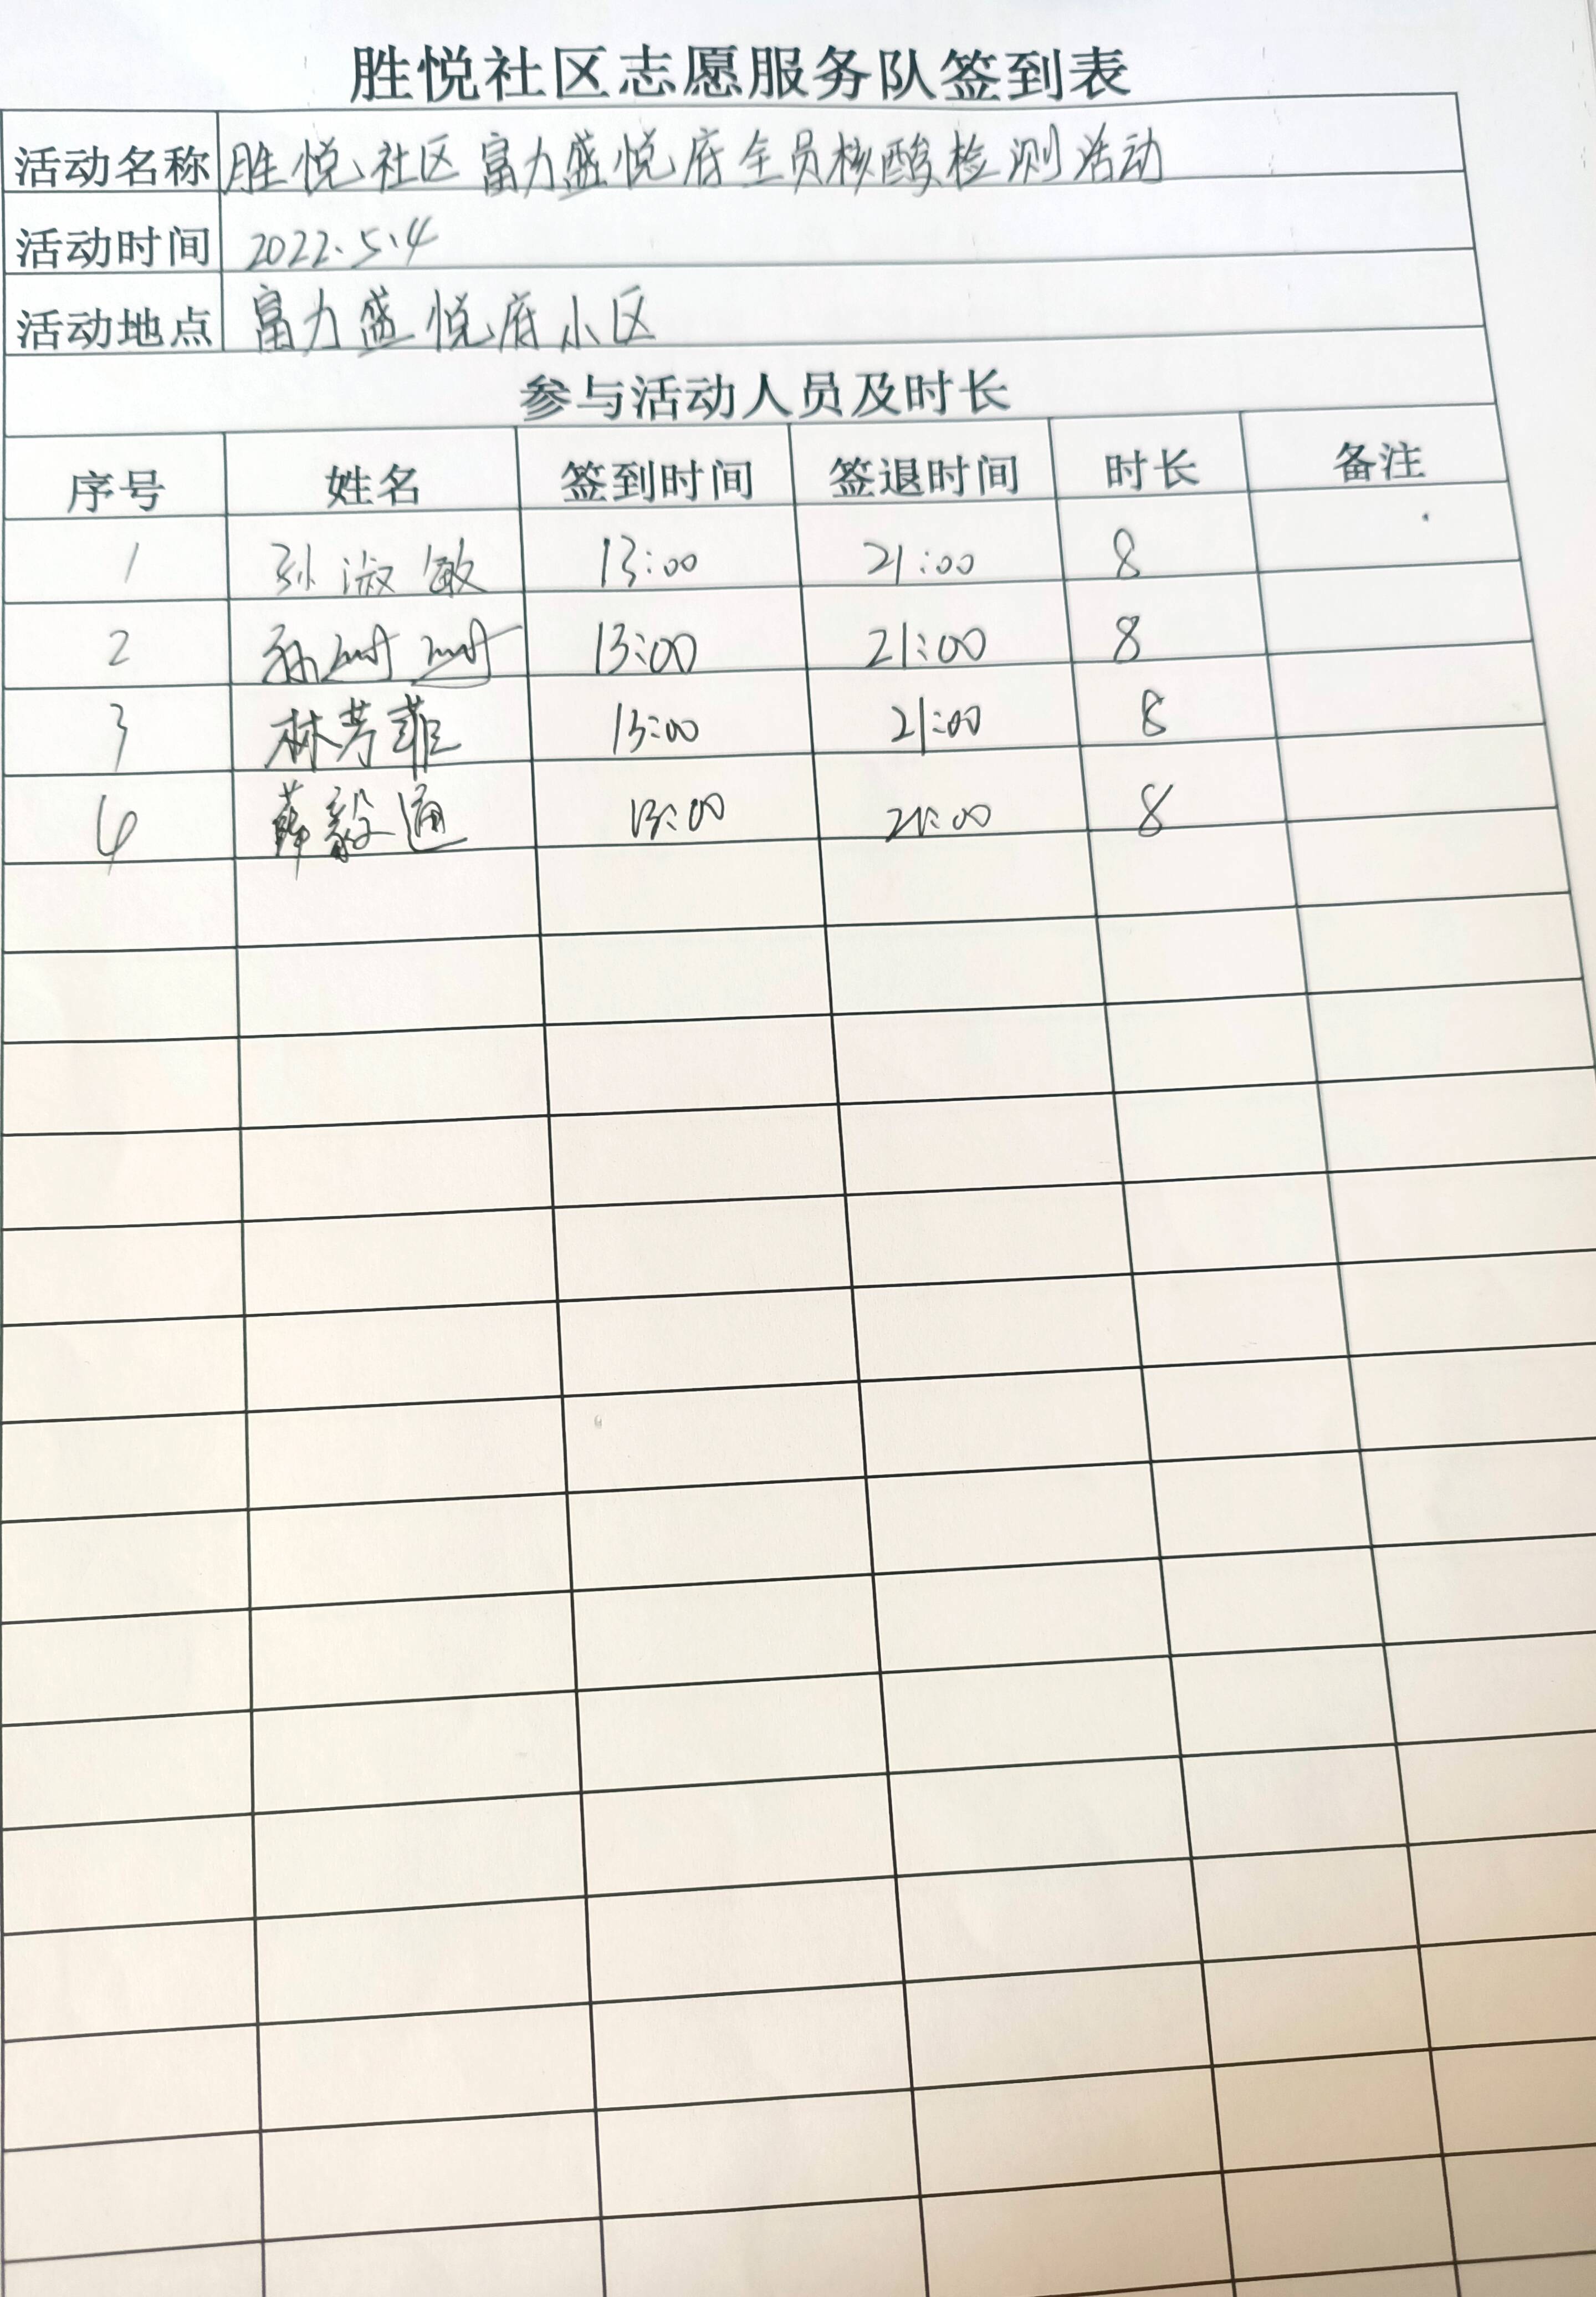 胜悦社区志愿服务队签到表
活动名称 胜悦社区富力盛悦府全员核酸检测活动
活动时间 2022.5.4
活动地点 富力盛悦府小区
参与活动人员及时长
序号 姓名 签到时间 签退时间 时长 备注
1 孙淑敏 13:00 21:00 8
2 孙 13:00 21:00 8
3 林芳菲 13:00 21:00 8
4 薛毅通 13:00 21:00 8